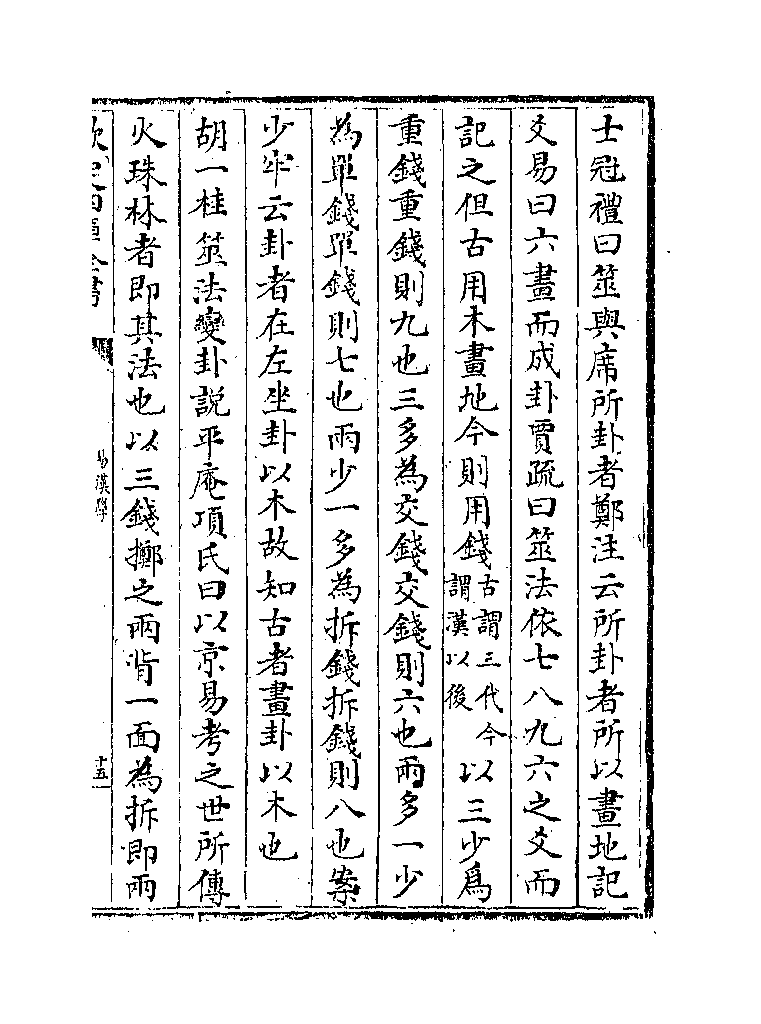 士冠禮曰筮與席所卦者鄭注云所卦者所以畫地記
爻易曰六畫而成卦賈疏曰筮法依七八九六之爻而
記之但古用木畫地今則用錢古謂三代今謂漢以後以三少爲
重錢重錢則九也三多為交錢交錢則六也兩多一少
為單錢單錢則七也兩少一多為拆錢拆錢則八也案
少牢云卦者在左坐卦以木故知古者畫卦以木也
胡一桂筮法變卦說平庵項氏曰以京易考之世所傳
火珠林者即其法也以三錢擲之兩背一面為拆即兩
欽定四庫全書
易漢學
十五